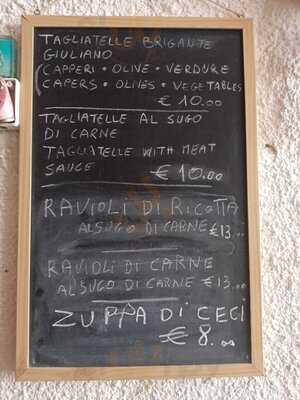 TAGLIATELLE BRIGANTE
GIULIANO
(CAPPERI • OLIVE • VERDURE
CAPERS • OLIVES • VEGETABLES
€ 10.00
TAGLIATELLE AL SUGO
DI CARNE
TAGLIATELLE WITH MEAT
SAUCE
€ 10.00
RAVIOLI DI RICOTTA
AL SUGO DI CARNE €13.00
RAVIOLI DI CARNE
AL SUGO DI CARNE €13.00
ZUPPA DI CECI
€ 8.00